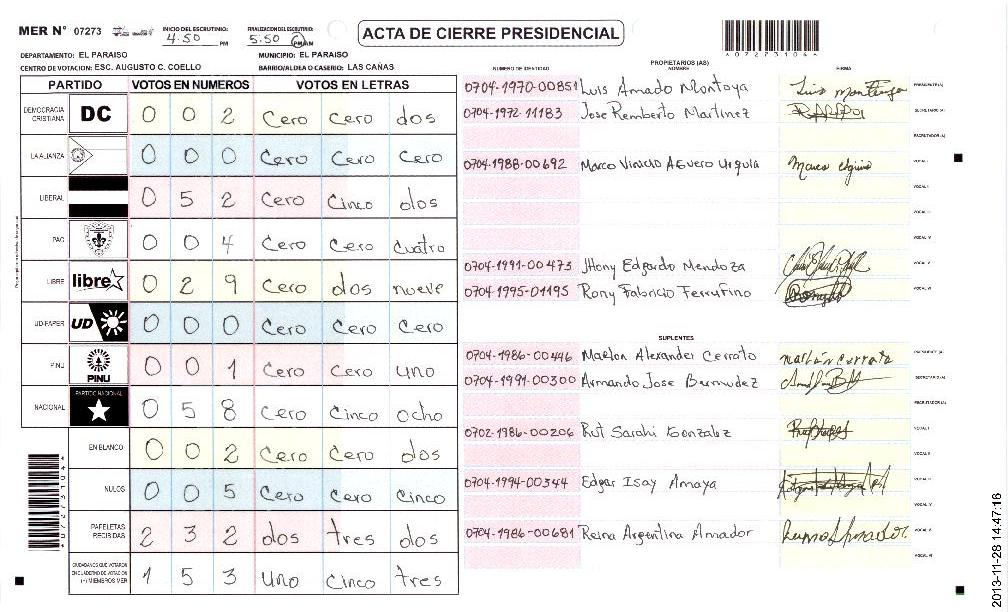 MER N° 07273
INICIO DEL ESCRUTINIO: 4:50 PM
FINALIZACION DEL ESCRUTINIO: 5:50 PM AM
ACTA DE CIERRE PRESIDENCIAL
07273104
DEPARTAMENTO: EL PARAISO
MUNICIPIO: EL PARAISO
CENTRO DE VOTACION: ESC. AUGUSTO C. COELLO
BARRIO/ALDEA O CASERIO: LAS CAÑAS
PARTIDO VOTOS EN NUMEROS VOTOS EN LETRAS
DEMOCRACIA CRISTIANA DC 0 0 2 Cero Cero dos
LA ALIANZA 0 0 0 Cero Cero Cero
LIBERAL 0 5 2 Cero Cinco dos
PAC 0 0 4 Cero Cero Cuatro
LIBRE libre 0 2 9 Cero dos nueve
UD-FAPER UD 0 0 0 Cero Cero Cero
PINU PINU 0 0 1 Cero Cero uno
NACIONAL PARTIDO NACIONAL 0 5 8 Cero Cinco ocho
EN BLANCO 0 0 2 Cero Cero dos
NULOS 0 0 5 Cero Cero Cinco
PAPELETAS RECIBIDAS 2 3 2 dos tres dos
CIUDADANOS QUE VOTARON EN CUADERNO DE VOTACION (+) MIEMBROS MER 1 5 3 Uno Cinco tres
07273104
PROPIETARIOS (AS)
NUMERO DE IDENTIDAD NOMBRE FIRMA
0704-1970-00851 Luis Amado Montoya PRESIDENTE (A)
0704-1972-11183 Jose Remberto Martinez SECRETARIO (A)
ESCRUTADOR (A)
0704-1988-00692 Marco Vinicio Aguero Urquia Marco VOCAL I
VOCAL II
VOCAL III
VOCAL IV
0704-1991-00473 Jhony Edgardo Mendoza VOCAL V
0704-1995-01195 Rony Fabricio Ferrufino VOCAL VI
SUPLENTES
0704-1986-00446 Marlon Alexander Cerrato marlon cerrato PRESIDENTE (A)
0704-1991-00300 Armando Jose Bermudez SECRETARIO (A)
ESCRUTADOR (A)
0702-1986-00206 Rut Sarahi Gonzalez VOCAL I
VOCAL II
0704-1994-00344 Edgar Isay Amaya VOCAL III
VOCAL IV
0704-1986-00681 Reina Argentina Amador VOCAL V
VOCAL VI
2013-11-28 14:47:16